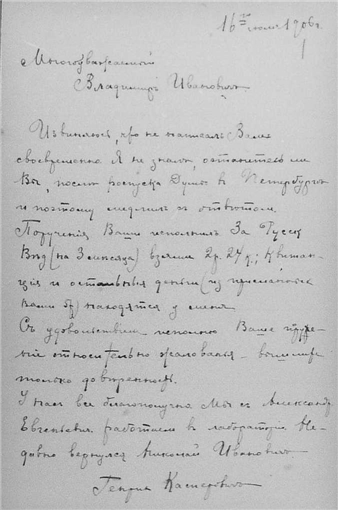 16го июля 1906 г.
Многоуважаемый
Владимиръ Ивановичъ
Извиняюсь, что не написалъ Вамъ
своевременно Я не зналъ, останетесь ли
Вы, послѣ роспуска Думы въ Петербургѣ
и поэтому медлилъ съ отвѣтомъ.
Порученія Ваши исполнилъ За Русск
Вѣд (на 3 мѣсяца) взяли 2р. 24 к; Квитан-
ція и остальныя деньги (изъ присланныхъ
Вами 6р) находятся у меня
Съ удовольствіемъ исполню Ваше
относительно жалованья - вышлите
только довѣренность.
У насъ все благополучно Мы съ Александр
Евгеньевич работаемъ въ лабораторіи Не-
давно вернулся Николай Ивановичъ
Генрих Касперович